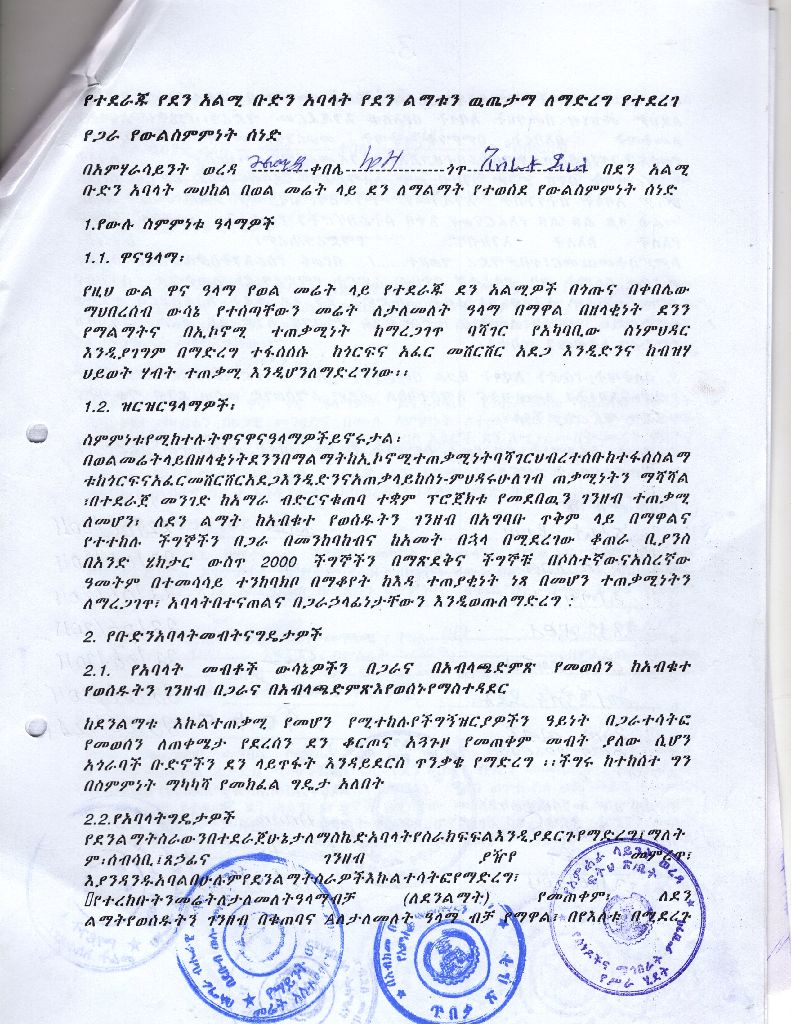 የተደራጁ የደን አልሚ ቡድን አባላት የደን ልማቱን ዉጤታማ ለማድረግ የተደረገ
የጋራ የውልስምምነት ሰነድ
በአምሃራሳይንት ወረዳ ቀበሌ ጎጥ በደን አልሚ
ቡድን አባላት መሀከል በወል መሬት ላይ ደን ለማልማት የተወሰደ የውልስምምነት ሰነድ
1.የውሉ ስምምነቱ ዓላማዎች
1.1. ዋናዓላማ፡
የዚህ ውል ዋና ዓላማ የወል መሬት ላይ የተደራጁ ደን አልሚዎች በጎጡና በቀበሌው
ማህበረሰብ ውሳኔ የተሰጣቸውን መሬት ለታለመለት ዓላማ በማዋል በዘላቂነት ደንን
የማልማትና በኢኮኖሚ ተጠቃሚነት ከማረጋገጥ ባሻገር የአካባቢው ስነምህዳር
እንዲያገግም በማድረግ ተፋሰሰሱ ከጎርፍና አፈር መሸርሸር አደጋ እንዲድንና ከብዝሃ
ህይወት ሃብት ተጠቃሚ እንዲሆንለማድረግነው፡፡
1.2. ዝርዝርዓላማዎች፡
ስምምነቱየሚከተሉትዋናዋናዓላማዎችይኖሩታል፡
በወልመሬትላይበዘላቂነትደንንበማልማትከኢኮኖሚተጠቃሚነትባሻገርህብረተሰቡከተፋሰስልማ
ቱከጎርፍናአፈርመሸርሸርአደጋእንዲድንናአጠቃላይከስነ-ምህዳሩሁለገብ ጠቃሚነትን ማሻሻል
፣በተደራጀ መንገድ ከአማራ ብድርናቁጠባ ተቋም ፕሮጀክቱ የመደበዉን ገንዘብ ተጠቃሚ
ለመሆን፣ ለደን ልማት ከአብቁተ የወሰዱትን ገንዘብ በአግባቡ ጥቅም ላይ በማዋልና
የተተከሉ ችግኞችን በጋራ በመንከባከብና ከአመት በኋላ በሚደረገው ቆጠራ ቢያንስ
በአንድ ሄክታር ውስጥ 2000 ችግኞችን በማጽደቅና ችግኞቹ በሶስተኛውናአስረኛው
ዓመትም በተመሳሳይ ተንከባክቦ በማቆየት ከእዳ ተጠያቂነት ነጻ በመሆን ተጠቃሚነትን
ለማረጋገጥ፣ አባላትበተናጠልና በጋራኃላፊነታቸውን እንዲወጡለማድረግ ፡
2. የቡድንአባላትመብትናግዴታዎች
2.1. የአባላት መብቶች ውሳኔዎችን በጋራና በአብላጫድምጽ የመወሰን ከአብቁተ
የወሰዱትን ገንዘብ በጋራና በአብላጫድምጽእየወሰኑየማስተዳደር
ከደንልማቱ እኩልተጠቃሚ የመሆን የሚተከሉየችግኝዝርያዎችን ዓይነት በጋራተሳትፎ
የመወሰን ለጠቀሜታ የደረሰን ደን ቆርጦና አጓጉዞ የመጠቀም መብት ያለው ሲሆን
አጎራባች ቡድኖችን ደን ላይጥፋት እንዳይደርስ ጥንቃቄ የማድረግ ፡፡ችግሩ ከተከሰተ ግን
በስምምነት ማካካሻ የመክፈል ግዴታ አለበት
2.2.የአባላትግዴታዎች
የደንልማትስራውንበተደራጀሁኔታለማስኬድአባላትየስራክፍፍልእንዲያደርጉየማድረግ፤ማለት
ም፡ሰብሳቢ፣ጸኃፊና ገንዘብ ያዥየ መምረጥ፣
እያንዳንዱአባልበሁሉምየደንልማትስራዎችእኩልተሳትፎየማድረግ፣
የተረከቡትንመሬትለታለመለትዓላማብቻ (ለደንልማት) የመጠቀም፣ ለደን
ልማትየወሰዱትን ገንዘብ በቁጠባና ለታለመለት ዓላማ ብቻ የማዋል፣ በየእለቱ በሚደረት